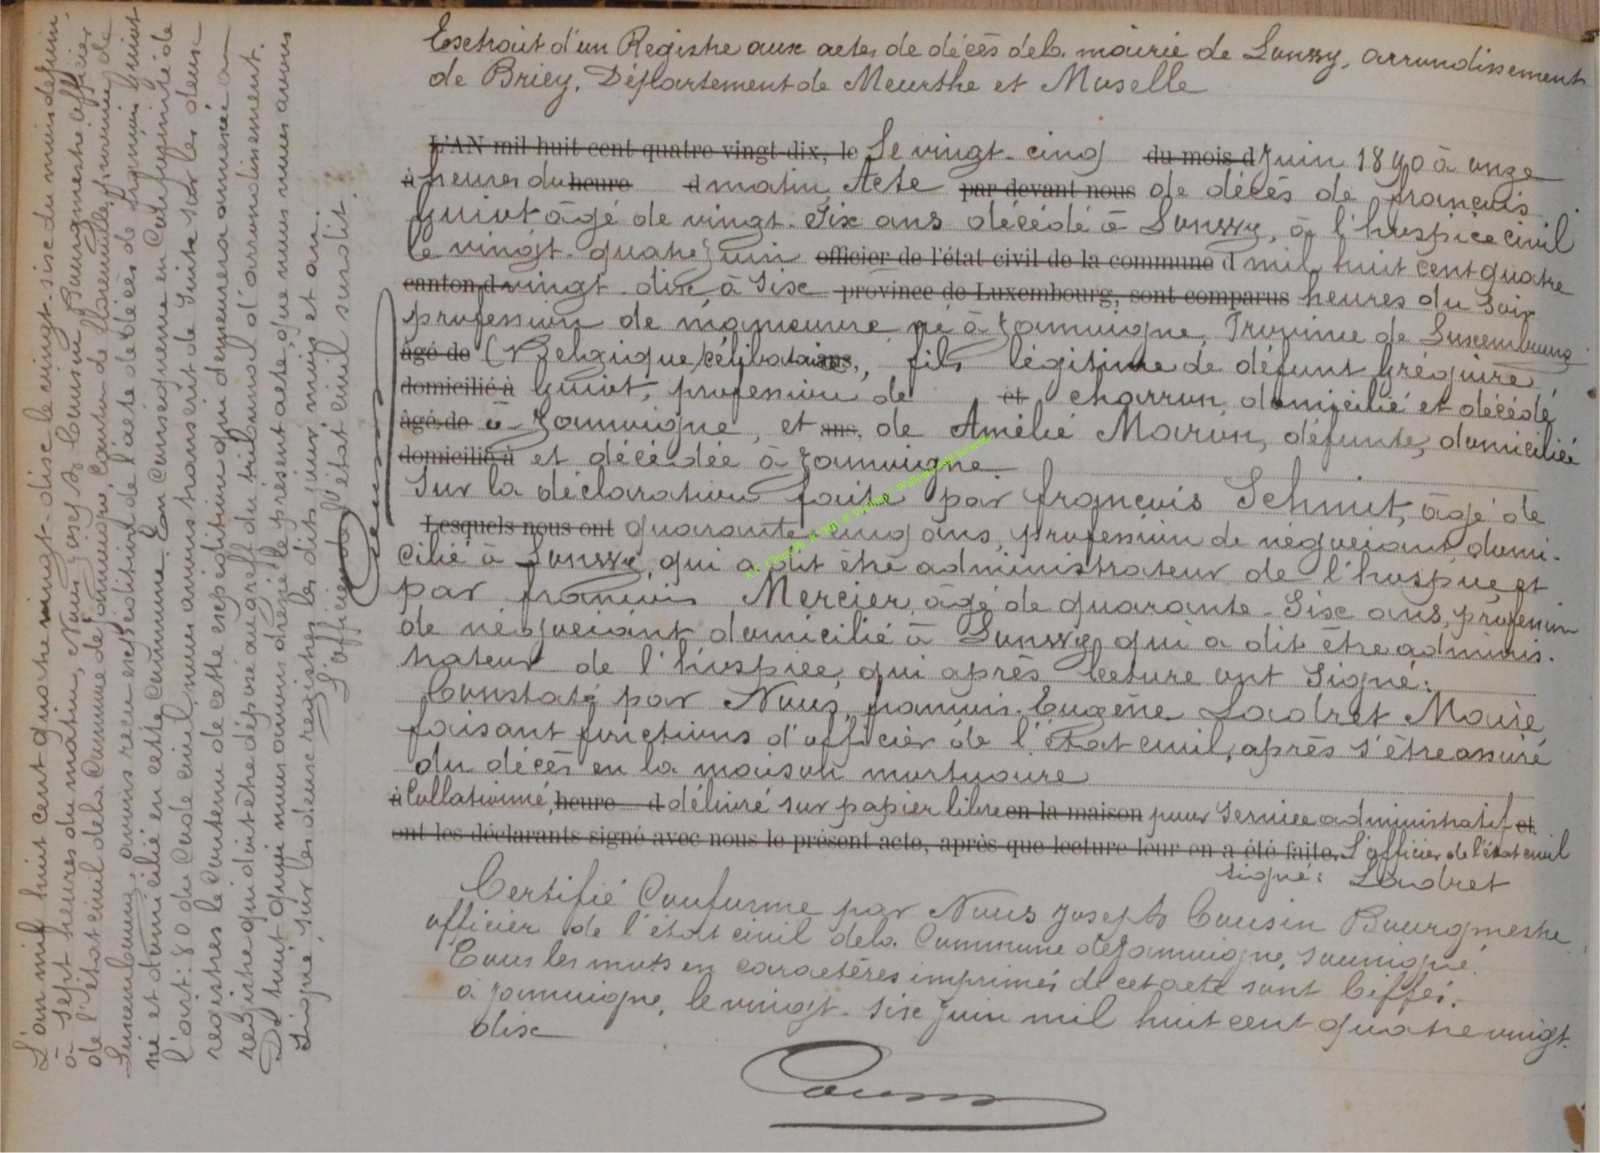 Extrait d'un Registre aux actes de décès de la mairie de Longwy, arrondissement
de Briey, Département de Meurthe et Moselle
L'AN mil huit cent quatre-vingt-dix, le Le vingt-cinq du mois d Juin 1890 à onze
à heures du heure d matin Acte par devant nous de décès de françois
Guiot âgé de vingt-Six ans décédé à Longwy, à l'hospice civil
le vingt-quatre Juin officier de l'état civil de la commune d mil huit cent quatre
canton d vingt-dix, à Six province de Luxembourg, sont comparus heures du Soir
profession de manoeuvre né à Jamoigne, Province de Luxembourg
âgé de (Belgique) célibataire ans, fils légitime de défunt Grégoire
domicilié à Guiot, profession de et charron, domicilié et décédé
âgé de à Jamoigne, et ans, de Amélie Maron, défunte, domiciliée
domicilié à et décédée à Jamoigne
Sur la déclaration faite par françois Schmit, âgé de
Lesquels nous ont quarante cinq ans, profession de négociant domi-
cilié à Longwy, qui a dit être administrateur de l'hospice et
par françois Mercier, âgé de quarante-Six ans, profession
de négociant domicilié à Longwy qui a dit être adminis-
trateur de l'hospice, qui après lecture ont Signé:
Constaté par Nous, françois-Eugène Ladret Maire
faisant fonctions d'officier de l'état civil, après s'être assuré
du décès en la maison mortuaire
à Collationné, heure d délivré sur papier libre en la maison pour Service administratif et
ont les déclarants signé avec nous le présent acte, après que lecture leur en a été faite. L'officier de l'état civil
signé: Ladret
Certifié Conforme par Nous Joseph Cousin Bourgmestre
officier de l'état civil de la Commune de Jamoigne, soussigné.
Tous les mots en caractères imprimés de cet acte sont biffés.
à Jamoigne, le vingt-six Juin mil huit cent quatre vingt-
dix
Cousin
L'an mil huit cent quatre vingt-dix le vingt-six du mois de juin
à sept heures du matin, Nous Joseph Cousin, Bourgmestre officier
de l'état civil de la Commune de Jamoigne, Canton de florenville, province de
Luxembourg, avons reçu expédition de l'acte de décès de françois Guiot
né et domicilié en cette Commune. En Conséquence en Conformité de
l'art: 80 du Code civil, nous avons transcrit de Suite sur les deux
registres le Contenu de cette expédition qui demeurera annexée au
registre qui doit être déposé au greffe du tribunal d'arrondissement.
De tout quoi nous avons dressé le présent acte, que nous nous avons
Signé, sur les deux registres les dits jour, mois et an.
L'officier de l'état civil susdit.
Cousin